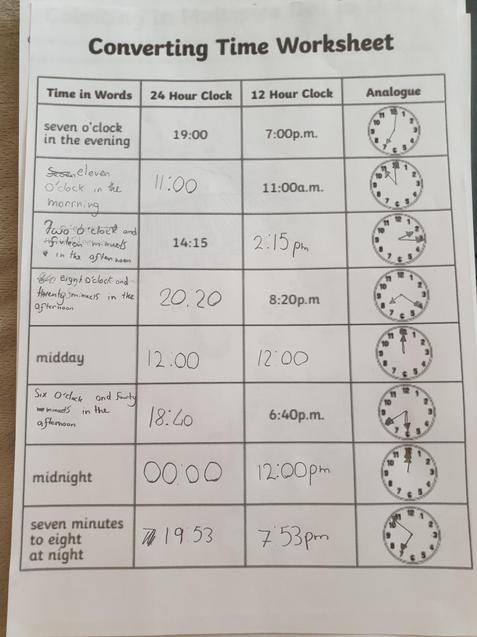 Converting Time Worksheet
Time in Words 24 Hour Clock 12 Hour Clock Analogue
seven o'clock
in the evening 19:00 7:00p.m.
eleven
O'clock in the
morning 11:00 11:00a.m.
Two o'clock and
fifteen minuets
in the afternoon 14:15 2:15pm
eight O'clock and
twenty minuets in the
afternoon 20.20 8:20p.m
midday 12:00 12:00
Six O'clock and fourty
minuets in the
afternoon 18:40 6:40p.m.
midnight 00:00 12:00pm
seven minutes
to eight
at night 19 53 7:53pm